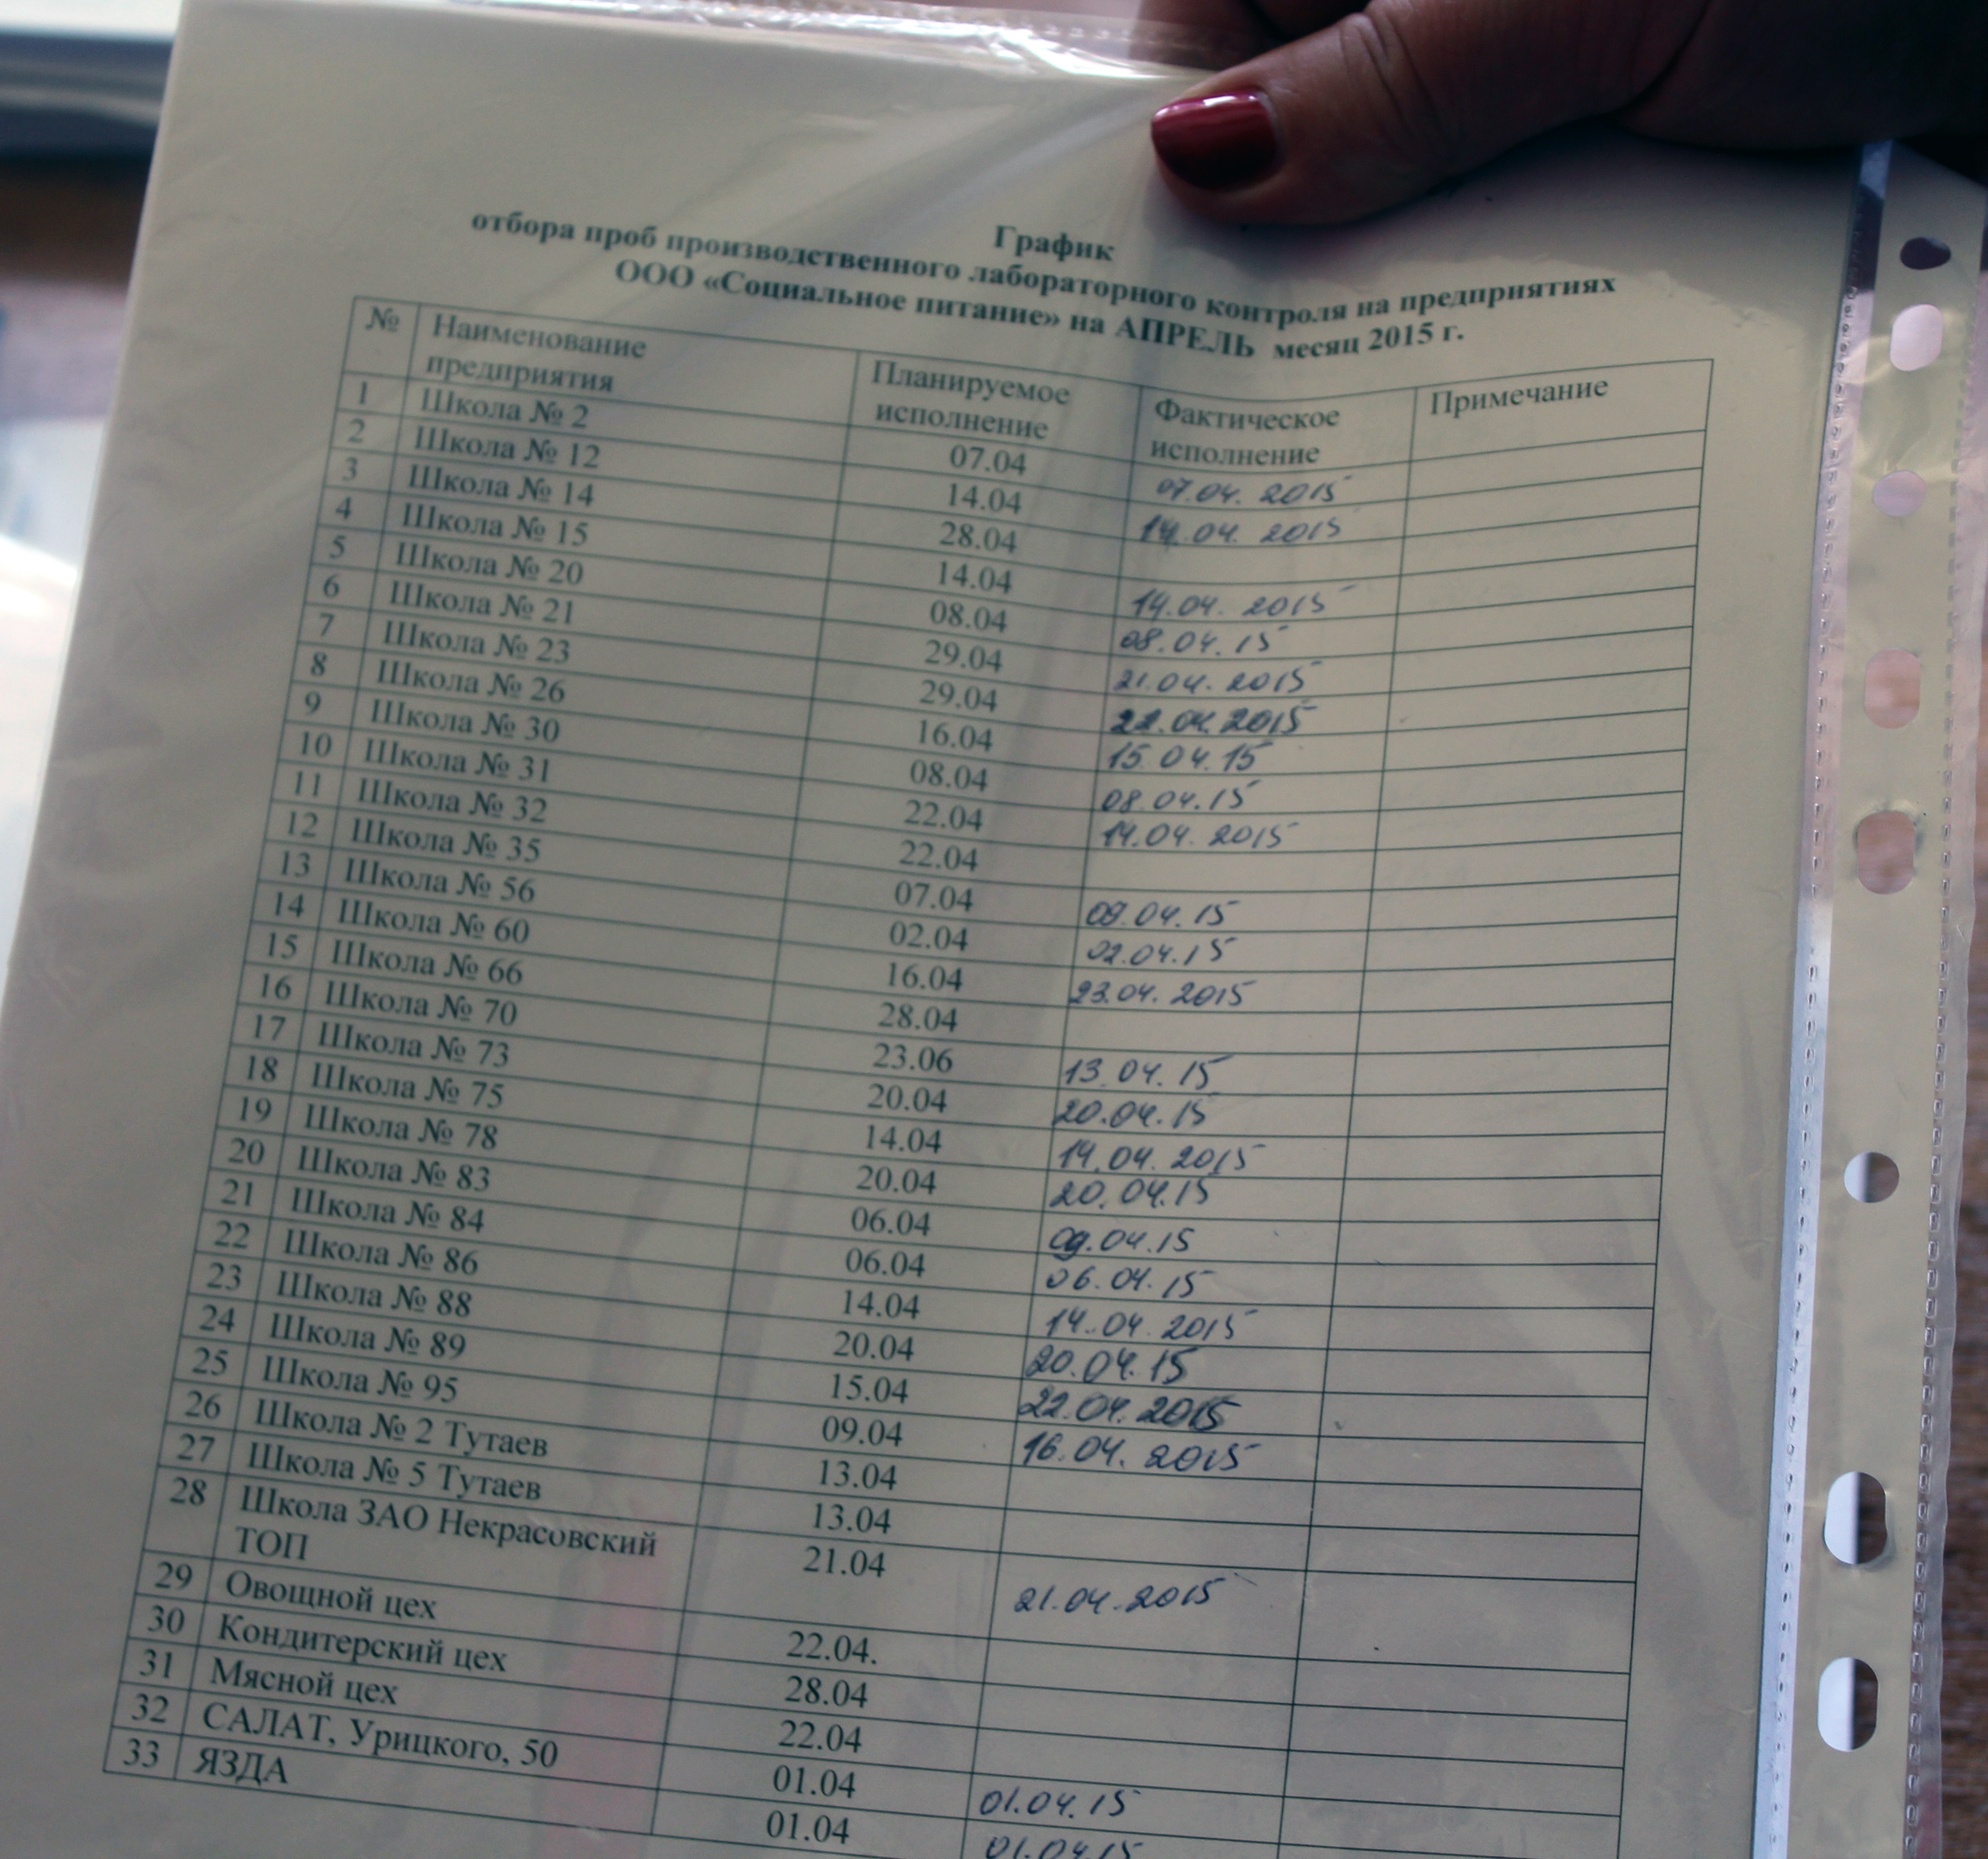 График
отбора проб производственного лабораторного контроля на предприятиях
ООО «Социальное питание» на АПРЕЛЬ месяц 2015 г.
№ Наименование предприятия Планируемое исполнение Фактическое исполнение Примечание
1 Школа № 2 07.04 07.04. 2015
2 Школа № 12 14.04 14.04. 2015
3 Школа № 14 28.04
4 Школа № 15 14.04 14.04. 2015
5 Школа № 20 08.04 08.04.15
6 Школа № 21 29.04 21.04.2015
7 Школа № 23 29.04 22.04.2015
8 Школа № 26 16.04 15.04.15
9 Школа № 30 08.04 08.04.15
10 Школа № 31 22.04 14.04.2015
11 Школа № 32 22.04
12 Школа № 35 07.04 09.04.15
13 Школа № 56 02.04 02.04.15
14 Школа № 60 16.04 23.04.2015
15 Школа № 66 28.04
16 Школа № 70 23.06 13.04.15
17 Школа № 73 20.04 20.04.15
18 Школа № 75 14.04 14.04.2015
19 Школа № 78 20.04 20.04.15
20 Школа № 83 06.04 09.04.15
21 Школа № 84 06.04 06.04.15
22 Школа № 86 14.04 14.04.2015
23 Школа № 88 20.04 20.04.15
24 Школа № 89 15.04 22.04.2015
25 Школа № 95 09.04 16.04.2015
26 Школа № 2 Тутаев 13.04
27 Школа № 5 Тутаев 13.04
28 Школа ЗАО Некрасовский 21.04 21.04.2015
ТОП
29 Овощной цех 22.04.
30 Кондитерский цех 28.04
31 Мясной цех 22.04
32 САЛАТ, Урицкого, 50 01.04 01.04.15
33 ЯЗДА 01.04 01.04.15